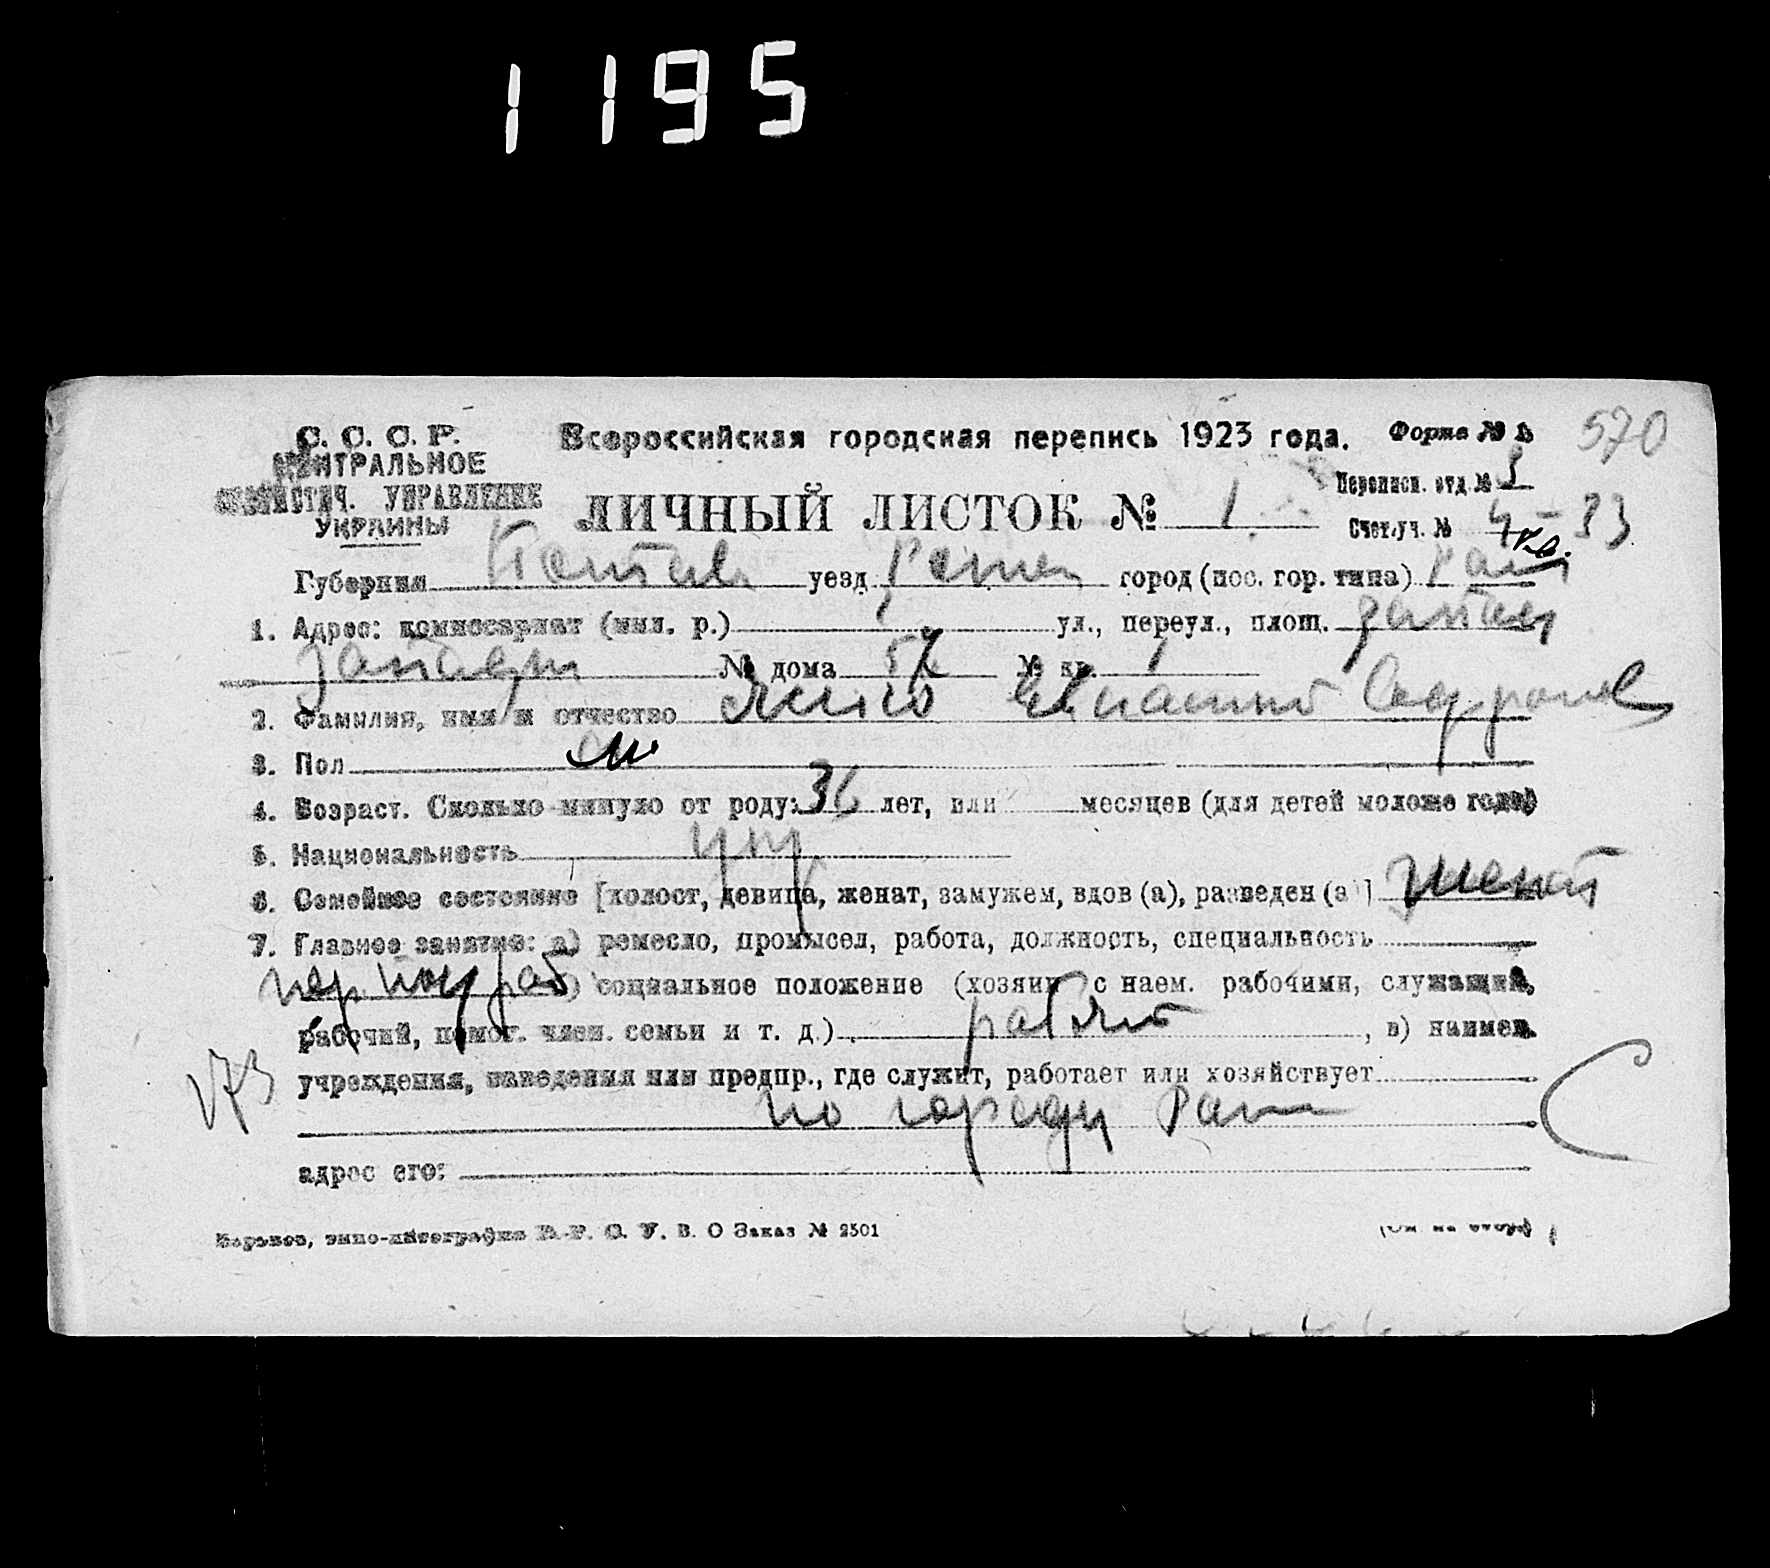 1195
С. С. С. Р. Всероссийская городская перепись 1923 года. Форма № 1 570
ЦЕНТРАЛЬНОЕ
СТАТИСТИЧ. УПРАВЛЕНИЕ
УКРАИНЫ
Переписн. отд. №
ЛИЧНЫЙ ЛИСТОК № 1
Счет. уч. № 4-33
Губерния Полтав уезд Ромен город (пос. гор. типа)
1. Адрес: комиссариат (мил. р.) ул., переул., площ.
№ дома 57 № кв. 1
2. Фамилия, имя и отчество
3. Пол м
4. Возраст. Сколько минуло от роду: 36 лет, или месяцев (для детей моложе года)
5. Национальность укр
6. Семейное состояние [холост, девица, женат, замужем, вдов (а), разведен (а)] женат
7. Главное занятие: а) ремесло, промысел, работа, должность, специальность
раб б) социальное положение (хозяин с наем. рабочими, служащий,
рабочий, помог. член. семьи и т. д.) рабочий, в) наимен.
учреждения, заведения или предпр., где служит, работает или хозяйствует
173
по городу
адрес его:
Заказ № 2501